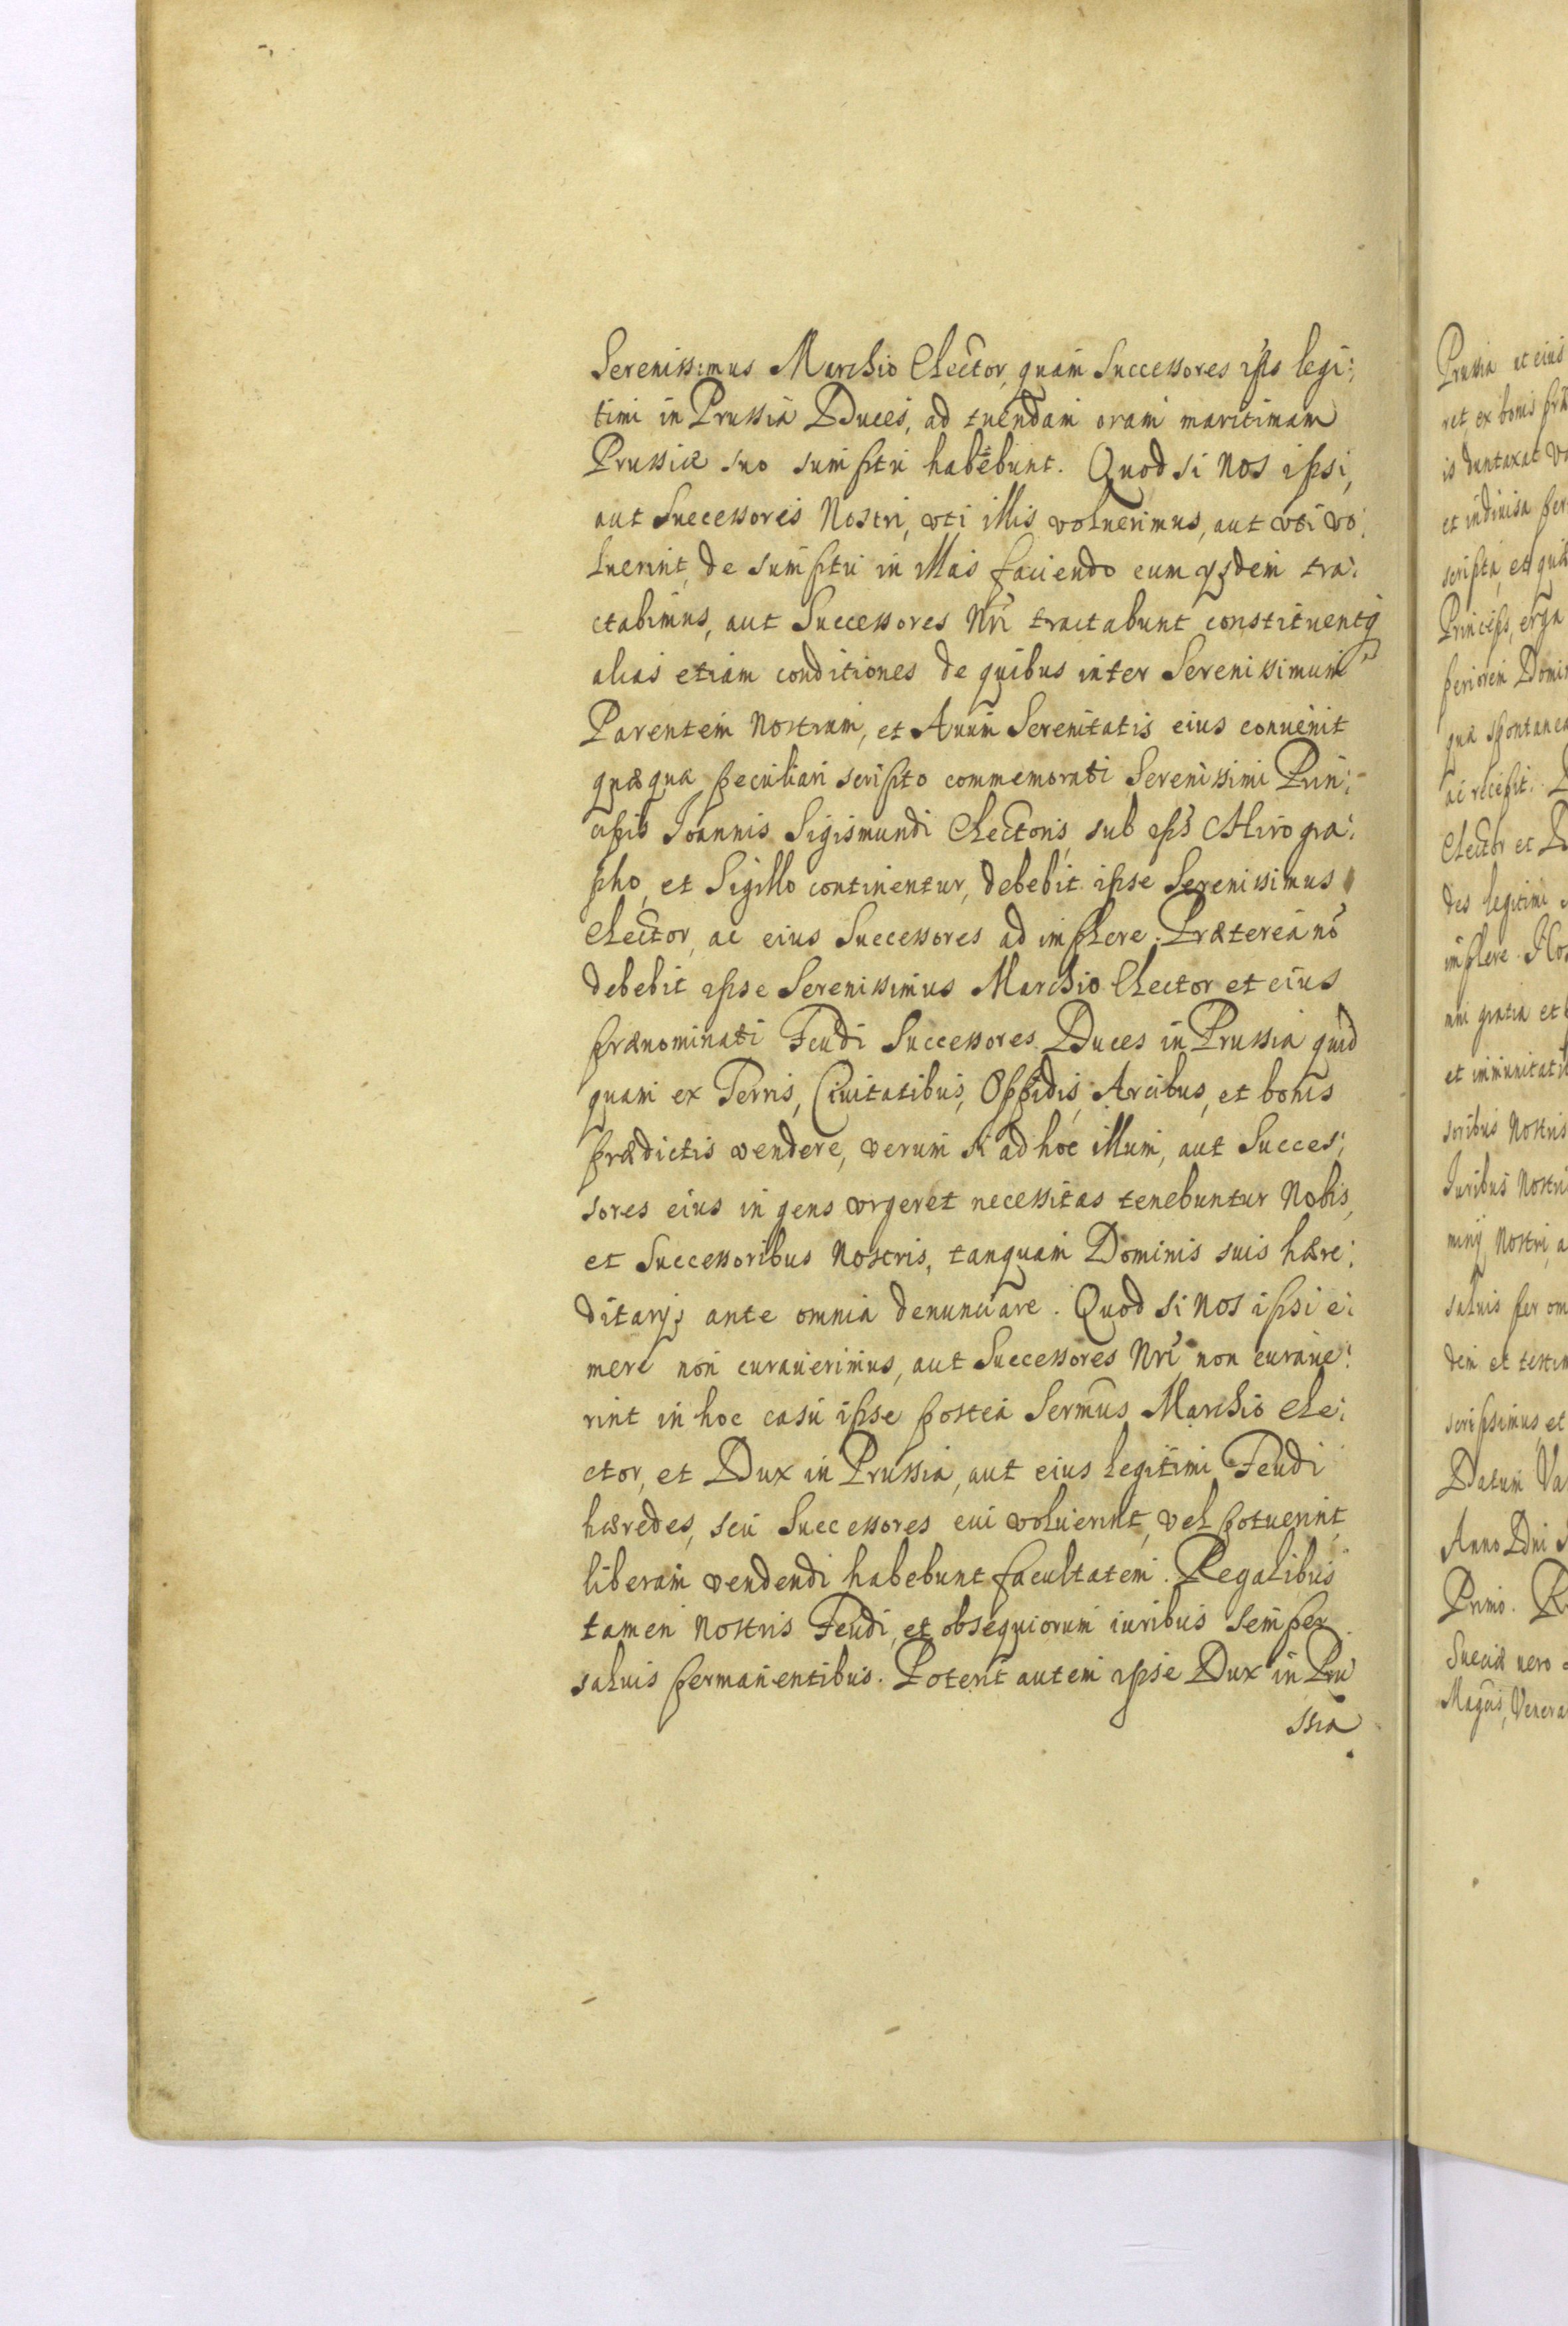 Serenissimus Marchio Elector, quam Successores ipsius legi:
timi in Prussia Duces, ad tuendam oram maritimam
Prussiæ suo sumptu habebunt. Quod si Nos ipsi,
aut Successores Nostri, vti illis voluerimus, aut vti vo:
luerint, de sumptu in illas faciendo cum ijsdem tra:
ctabimus, aut Successores Nri tractabunt constituentq
alias etiam conditiones de quibus inter Serenissimum
Parentem Nostrum, et Auum Serenitatis eius conuenit
quæqua peculiari scripto commemorati Serenissimi Prin:
cipis Joannis Sigismundi Electoris, sub ipsius Chirogra:
pho, et Sigillo continentur, debebit ipse Serenissimus
Elector, ac eius Successores ad implere. Præterea nō
debebit ipse Serenissimus Marchio Elector et eius
prænominati Feudi Successores Duces in Prussia quid
quam ex Terris, Ciuitatibus, Oppidis, Arcibus, et bonis
prædictis vendere, verum si ad hoc illum, aut Succes:
sores eius in gens vrgeret necessitas tenebuntur Nobis,
et Successoribus Nostris, tanquam Dominis suis hære:
ditarijs ante omnia denunciare. Quod si Nos ipsi e:
mere non curauerimus, aut Successores Nri non curaue:
rint in hoc casu ipse postea Sermus Marchio Ele:
ctor, et Dux in Prussia, aut eius legitimi Feudi
hæredes, seu Successores cui voluerint, vel potuerint,
liberam vendendi habebunt facultatem. Regalibus
tamen Nostris Feudi, et obsequiorum iuribus semper
saluis permanentibus. Poterit autem ipse Dux in Pru
ssia
Prussia et eius
ret, ex bonis
is duntaxat
et indiuisa
scripta, et
Princeps, erga
periorem
quæ spontanea
ac recepit.
Elector et
des legitimi
implere.
ni gratia et
et
soribus Nostris
Juribus
Nostri, a
saluis per
dem et
scripsimus, et
Datum
Anno Dni
Primo.
Sueciæ vero